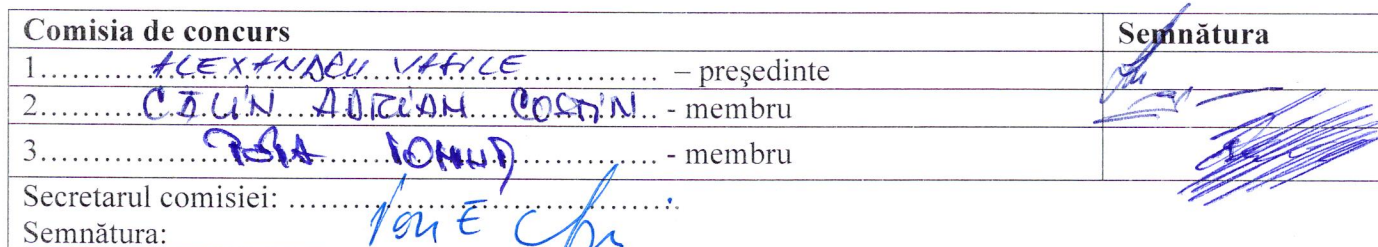 Comisia de concurs Semnătura
1.......... ALEXANDRU VASILE .......... – preşedinte
2.......... CĂLIN ADRIAN COSTIN .. - membru
3.......... POPA IONUŢ .......... - membru
Secretarul comisiei: ..........
Semnătura: